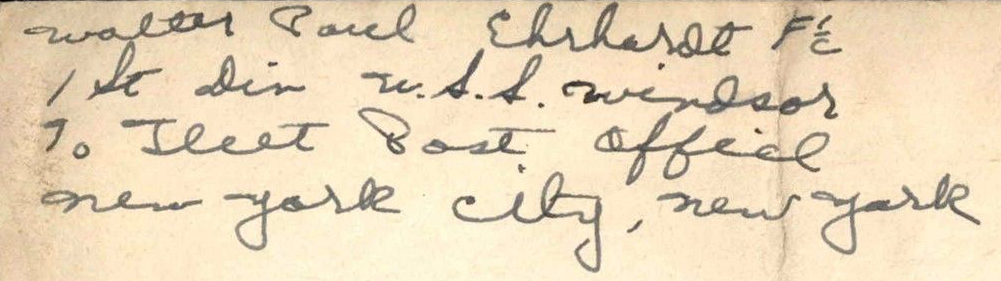 Walter Paul Ehrhardt F 1/c
1 St Div U.S.S. Windsor
% Fleet Post Office
New York City, New York